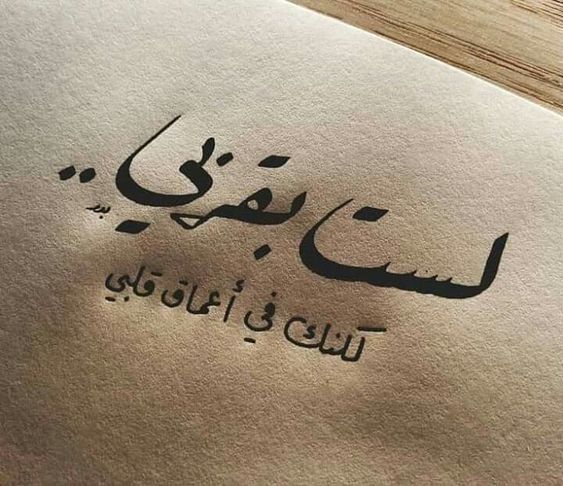 لست بقربي ..
لكنك في أعماق قلبي
بدر